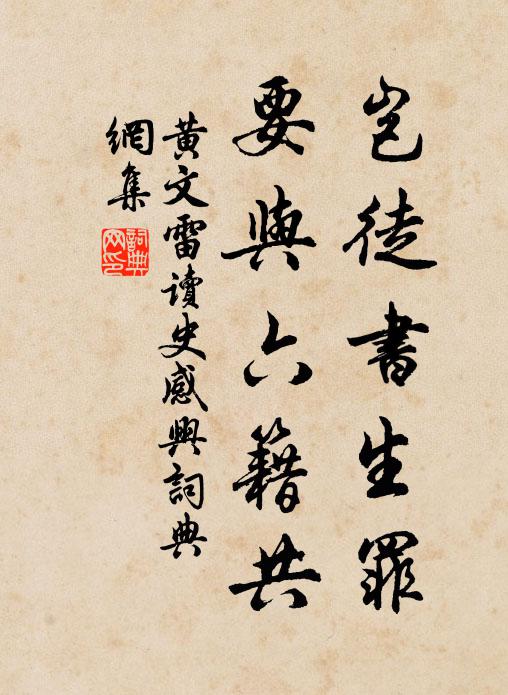 豈徒書生罪
要與六籍共
黃文雷讀史感興詞典
網集
詞典
网印